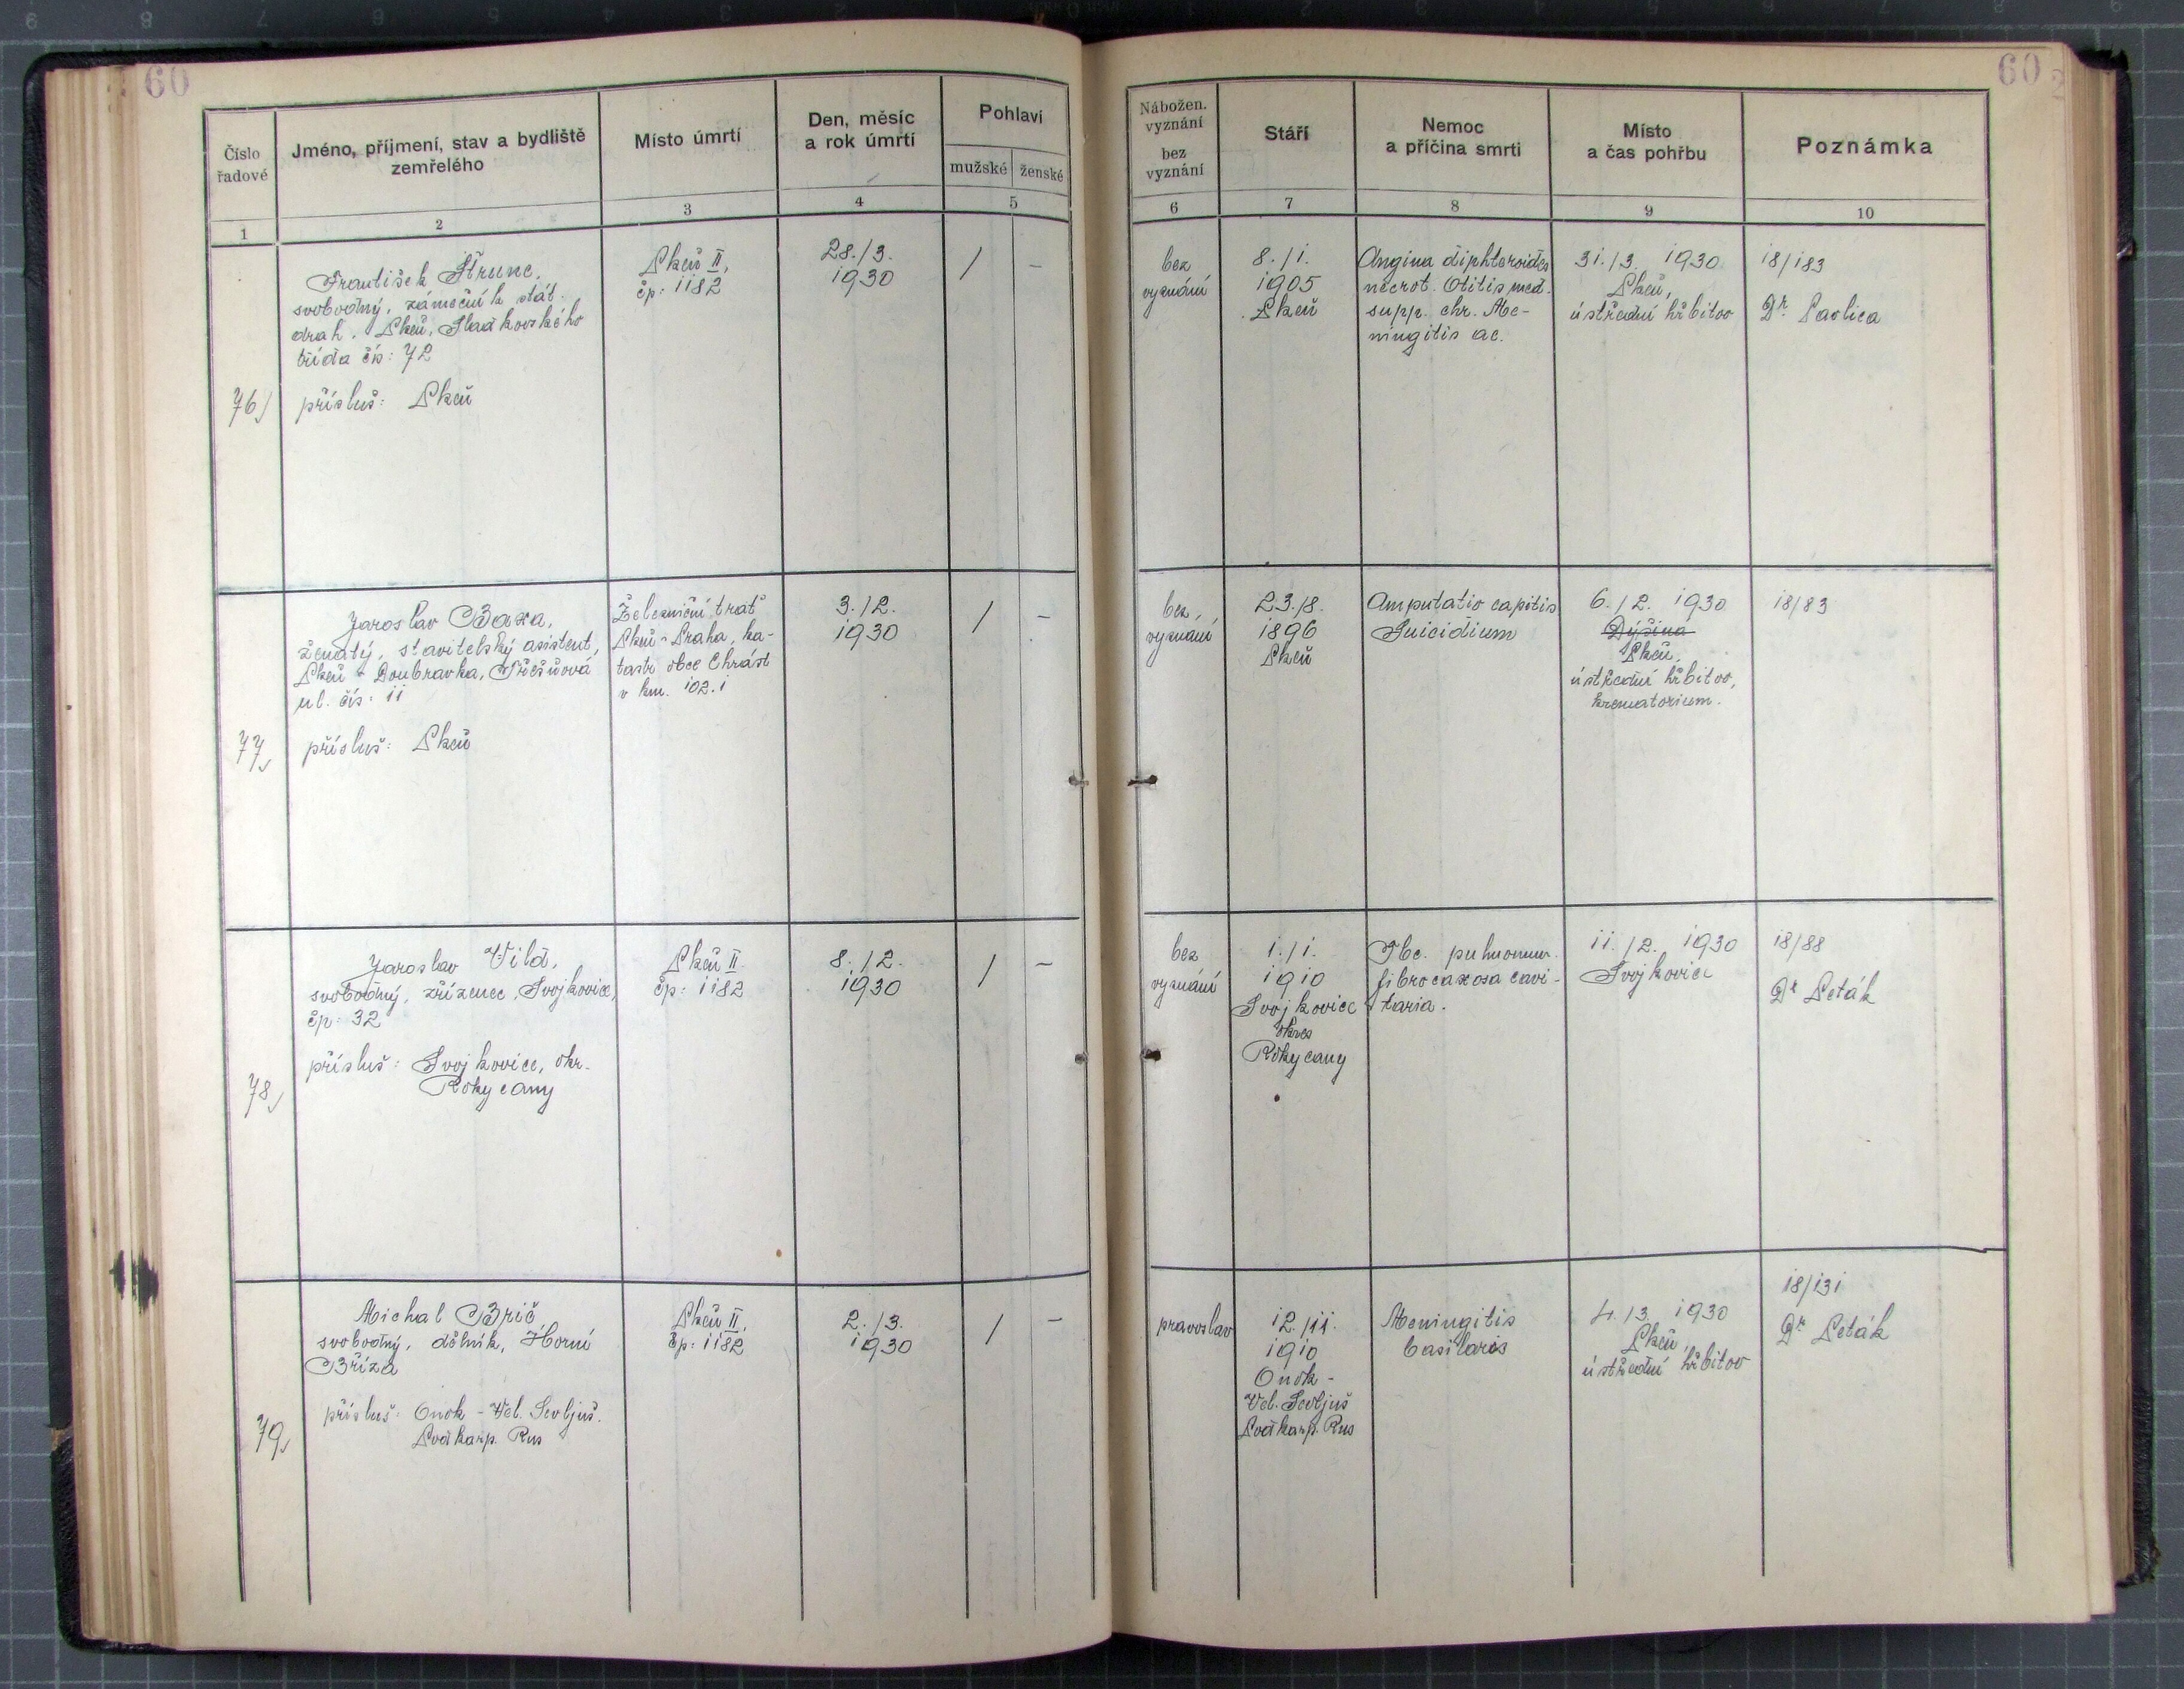 60
60
Číslo řadové
Jméno, příjmení, stav a bydliště
zemřelého
Místo úmrtí
Den, měsíc
a rok úmrtí
Pohlaví
mužské
ženské
Nábožen.
vyznání
bez
vyznání
Stáří
Nemoc
a příčina smrti
Místo
a čas pohřbu
Poznámka
1
2
3
4
5
6
7
8
9
10
76)
František
svobodný, zámečník stát.
drah. Plzeň, Sladkovského
třída čís: 72
přísluš: Plzeň
Plzeň II,
čp: 1182
28./3.
1930
/
–
bez
vyznání
8./1.
1905
Plzeň
Angina diphteroides
necrot. Otitis med.
supp. chr. Me-
ningitis ac.
31./3. 1930
Plzeň,
ústřední hřbitov
18/183
Dr. Pavlica
77)
Jaroslav Baxa,
ženatý, stavitelský asistent,
Plzeň - Doubravka,
ul. čís: 11
přísluš: Plzeň
Železniční trať
Plzeň - Praha, ka-
tastr obce Chrást
v km. 102.1
3./2.
1930
/
–
bez,
vyznání
23./8.
1896
Plzeň
Amputatio capitis
Suicidium
6./2. 1930
Dýšina
Plzeň,
ústřední hřbitov,
krematorium.
18/83
78)
Jaroslav Vild,
svobodný, zřízenec, Svojkovice,
čp: 32
přísluš: Svojkovice, okr.
Rokycany
Plzeň II.
čp: 1182
8./2.
1930
/
–
bez
vyznání
1./1.
1910
Svojkovice
okres
Rokycany
Tbc. pulmonum
fibrocaseosa cavi-
taria.
11./2. 1930
Svojkovice
18/88
Dr Peták
79)
Michal Brič,
svobodný, dělník, Horní
Bříza
přísluš: Onok - Vel. Sevljuš.
Podkarp. Rus
Plzeň II,
čp: 1182
2./3.
1930
/
–
pravoslav
12./11.
1910
Onok -
Vel. Sevljuš
Podkarp. Rus
Meningitis
basilaris
4./3. 1930
Plzeň,
ústřední hřbitov
18/131
Dr Peták